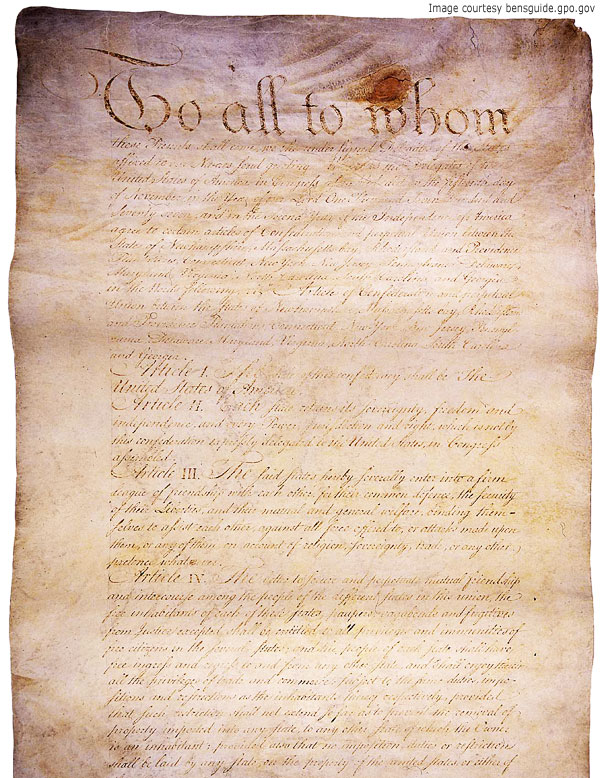 Image courtesy bensguide.gpo.gov
To all to whom
these Presents shall come, we the under signed Delegates of the States
affixed to our Names send greeting. Whereas the Delegates of the
United States of America in Congress assembled did on the fifteenth day
of November in the Year of our Lord One Thousand Seven Hundred and
Seventy seven, and in the Second Year of the Independence of America
agree to certain articles of Confederation and perpetual Union between the
States of Newhampshire, Massachusetts-bay, Rhodeisland and Providence
Plantations, Connecticut, New York, New Jersey, Pennsylvania, Delaware,
Maryland, Virginia, North-Carolina, South-Carolina and Georgia
in the Words following, viz. Articles of Confederation and perpetual
Union between the States of Newhampshire, Massachusetts-bay, Rhodeisland
and Providence Plantations, Connecticut, New-York, New-Jersey, Pennsyl-
vania, Delaware, Maryland, Virginia, North-Carolina, South-Carolina
and Georgia.
Article I. The of this confederacy shall be "The
United States of America."
Article II. Each state retains its sovereignty, freedom and
independence, and every Power, Jurisdiction and right, which is not by
this confederation expressly delegated to the United States, in Congress
assembled.
Article III. The said states hereby severally enter into a firm
league of friendship with each other, for their common defence, the security
of their Liberties, and their mutual and general welfare, binding them-
selves to assist each other, against all force offered to, or attacks made upon
them, or any of them, on account of religion, sovereignty, trade, or any other
pretence whatever.
Article IV. The better to secure and perpetuate mutual friendship
and intercourse among the people of the different states in this union, the
free inhabitants of each of these states, paupers, vagabonds and fugitives
from Justice excepted, shall be entitled to all privileges and immunities of
free citizens in the several states; and the people of each state shall have
free ingress and regress to and from any other state, and shall enjoy therein
all the privileges of trade and commerce, subject to the same duties, impo-
sitions and restrictions as the inhabitants thereof respectively, provided
that such restriction shall not extend so far as to prevent the removal of
property imported into any state, to any other state of which the Owner
is an inhabitant; provided also that no imposition, duties or restriction
shall be laid by any state, on the property of the united states, or either of